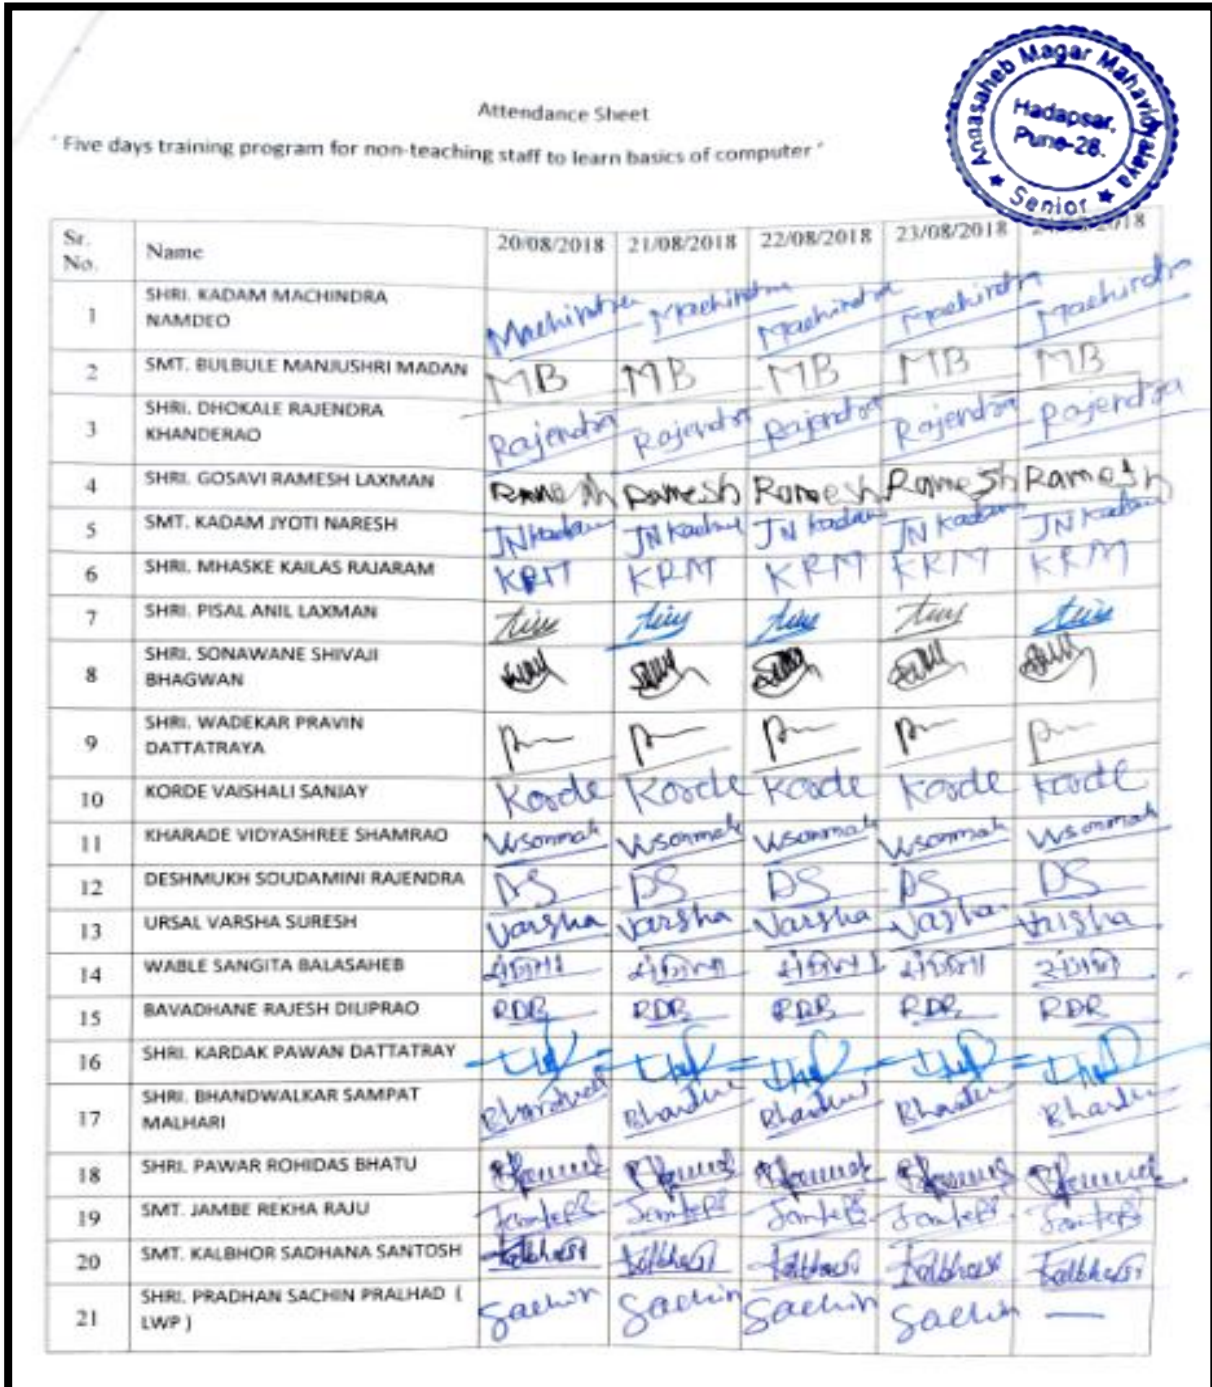 Annasaheb Magar Mahavidyalaya
Hadapsar,
Pune-28.
★ Senior ★
Attendance Sheet
" Five days training program for non-teaching staff to learn basics of computer "
Sr. No. Name 20/08/2018 21/08/2018 22/08/2018 23/08/2018 2018
1 SHRI. KADAM MACHINDRA NAMDEO Machindra Machindra Machindra Machindra Machindra
2 SMT. BULBULE MANJUSHRI MADAN MB MB MB MB MB
3 SHRI. DHOKALE RAJENDRA KHANDERAO Rajendra Rajendra Rajendra Rajendra Rajendra
4 SHRI. GOSAVI RAMESH LAXMAN Ramesh Ramesh Ramesh Ramesh Ramesh
5 SMT. KADAM JYOTI NARESH JNKadam JN Kadam JN Kadam JN Kadam JN Kadam
6 SHRI. MHASKE KAILAS RAJARAM KRM KRM KRM KRM KRM
7 SHRI. PISAL ANIL LAXMAN
8 SHRI. SONAWANE SHIVAJI BHAGWAN
9 SHRI. WADEKAR PRAVIN DATTATRAYA
10 KORDE VAISHALI SANJAY Korde Korde Korde Korde Korde
11 KHARADE VIDYASHREE SHAMRAO
12 DESHMUKH SOUDAMINI RAJENDRA DS DS DS DS DS
13 URSAL VARSHA SURESH Varsha Varsha Varsha Varsha Varsha
14 WABLE SANGITA BALASAHEB संगिता संगिता संगिता संगिता संगिता
15 BAVADHANE RAJESH DILIPRAO RDB RDB RDB RDB RDB
16 SHRI. KARDAK PAWAN DATTATRAY
17 SHRI. BHANDWALKAR SAMPAT MALHARI
18 SHRI. PAWAR ROHIDAS BHATU
19 SMT. JAMBE REKHA RAJU
20 SMT. KALBHOR SADHANA SANTOSH Kalbhor Kalbhor Kalbhor Kalbhor Kalbhor
21 SHRI. PRADHAN SACHIN PRALHAD ( LWP ) Sachin Sachin Sachin Sachin —